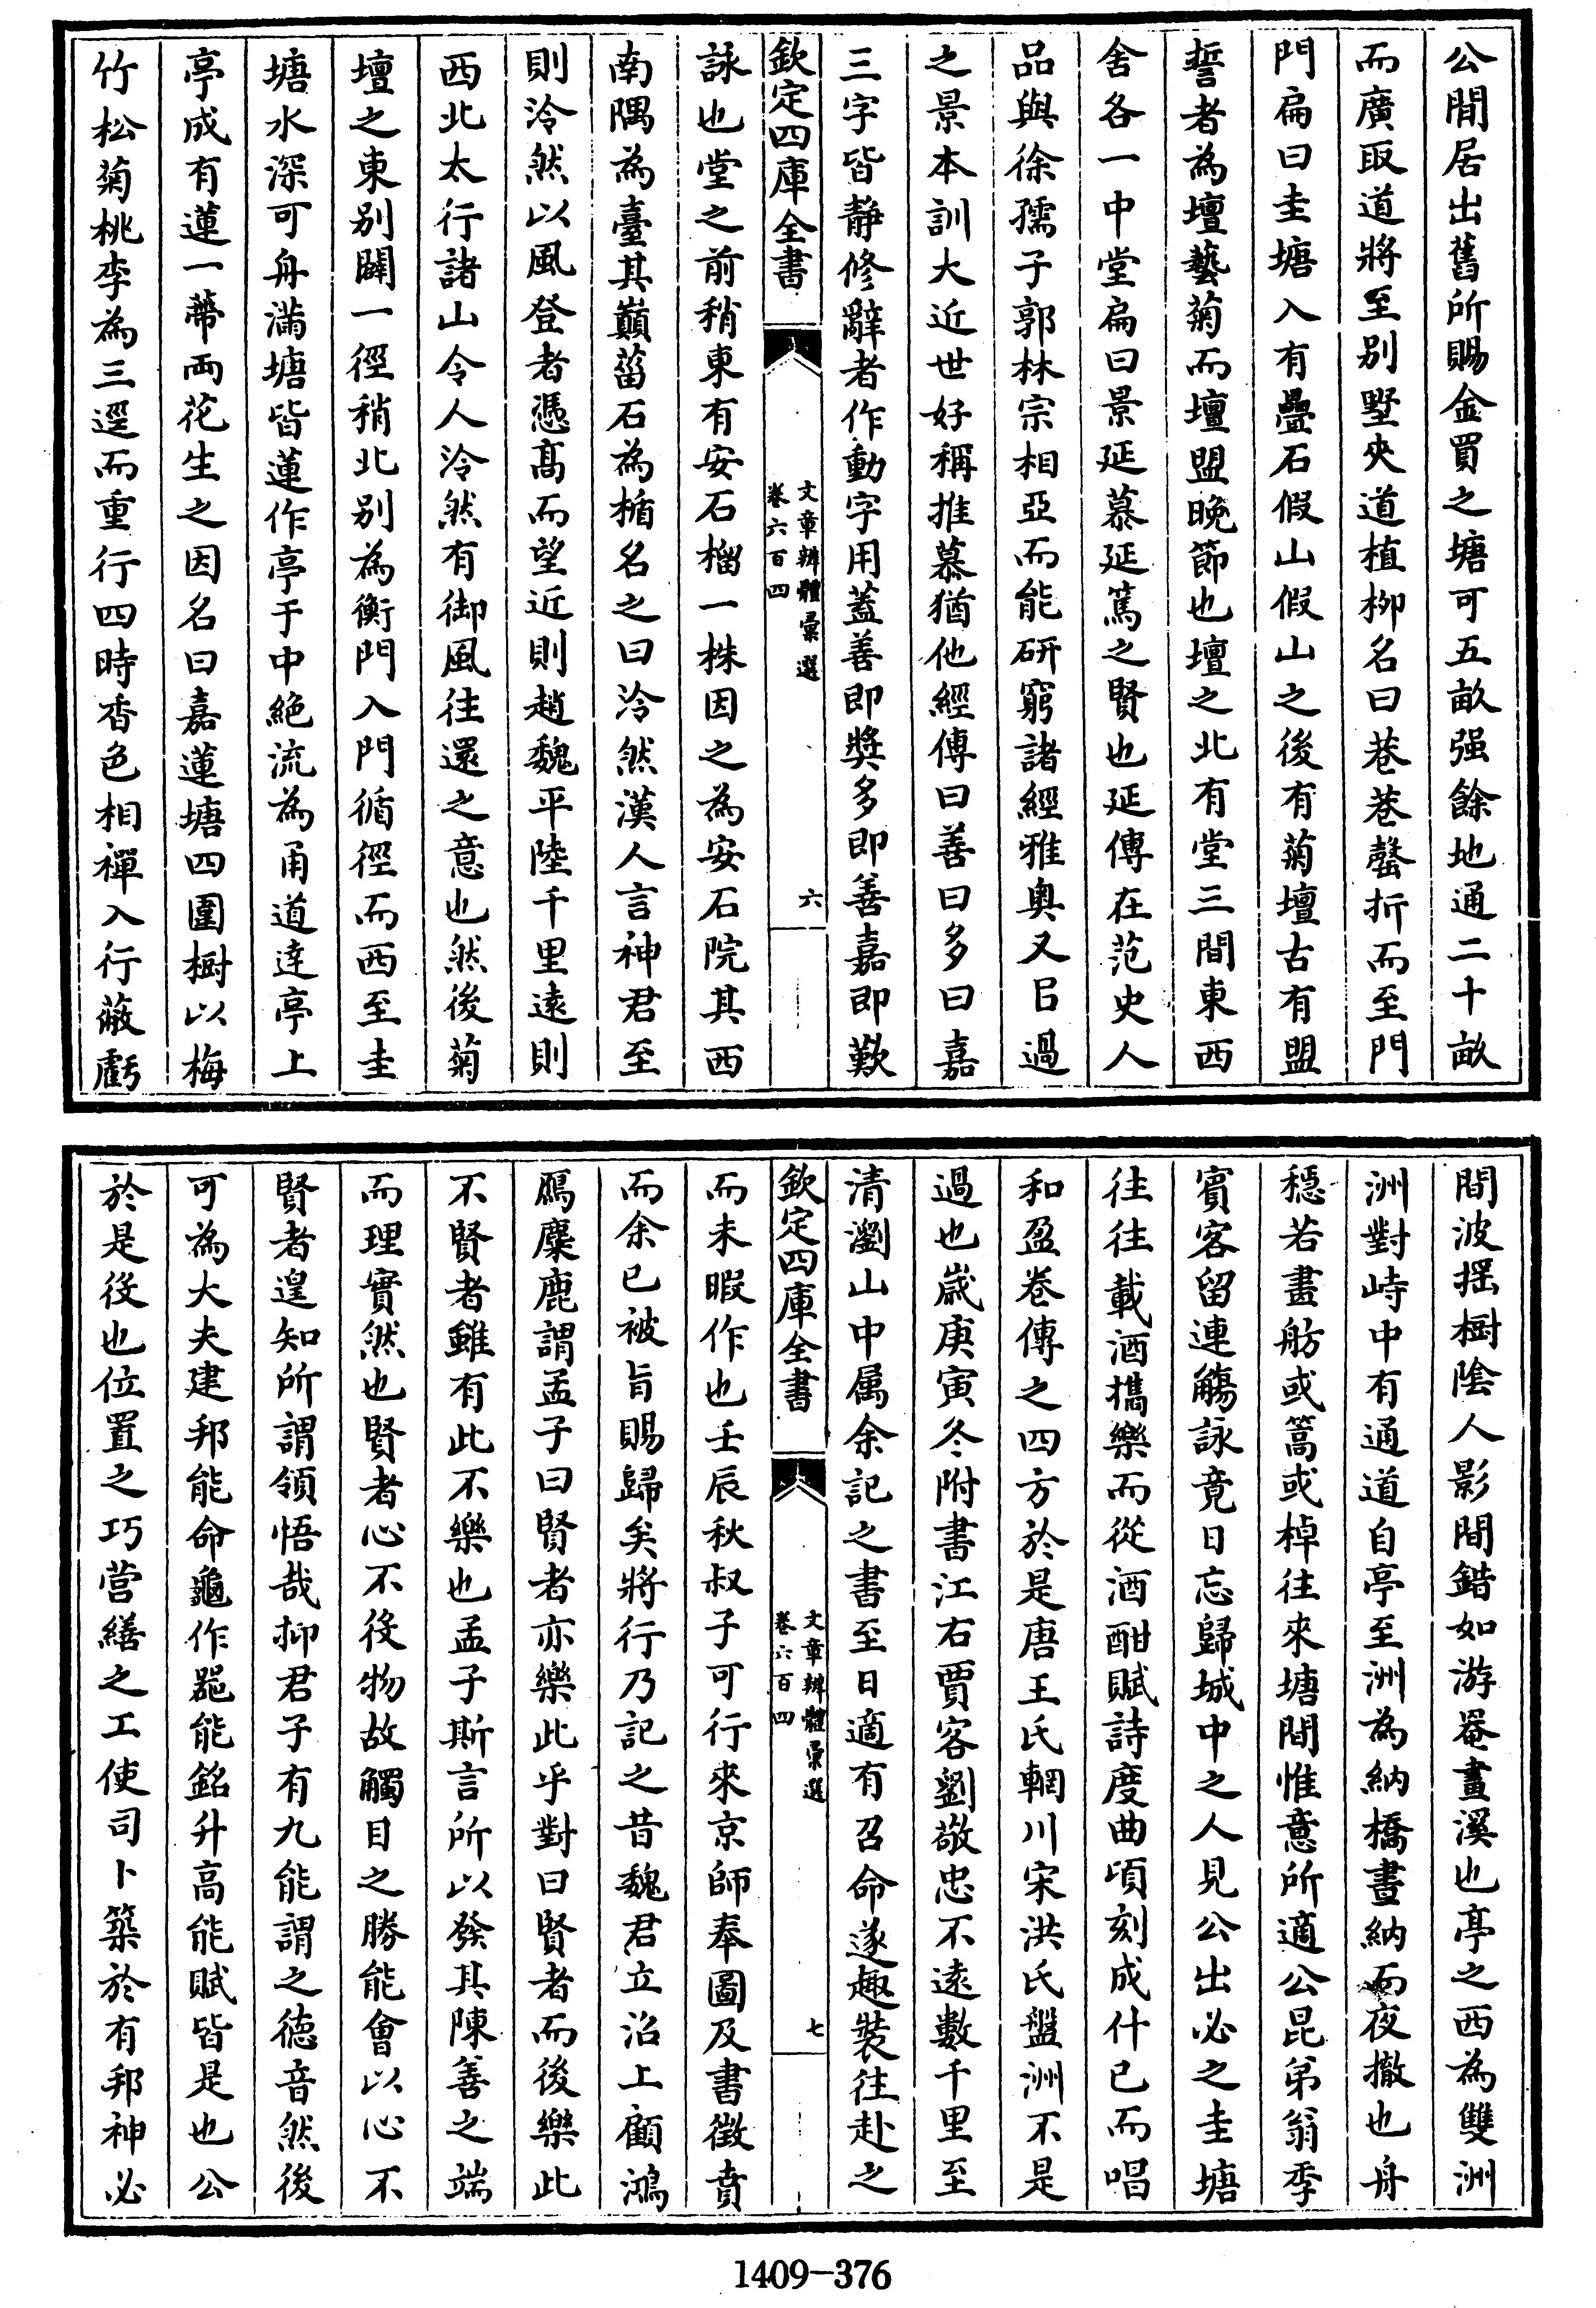 公間居出舊所賜金買之塘可五畝强餘地通二十畝
而廣取道將至别墅夾道植栁名曰巷巷磬折而至門
門扁曰圭塘入有疊石假山假山之後有菊壇古有盟
誓者為壇藝菊而壇盟晚節也壇之北有堂三間東西
舍各一中堂扁曰景延慕延篤之賢也延傳在范史人
品與徐孺子郭林宗相亞而能研窮諸經雅奥又㠯過
之景本訓大近世好稱推慕猶他經傳曰善曰多曰嘉
三字皆靜修辭者作動字用蓋善即奬多即善嘉即歎
欽定四庫全書
文章辨體彚選
卷六百四
六
詠也堂之前稍東有安石榴一株因之為安石院其西
南隅為臺其巔菑石為楯名之曰泠然漢人言神君至
則泠然以風登者憑髙而望近則趙魏平陸千里逺則
西北太行諸山令人泠然有御風往還之意也然後菊
壇之東别闢一徑稍北别為衡門入門循徑而西至圭
塘水深可舟滿塘皆蓮作亭于中絶流為甬道逹亭上
亭成有蓮一蔕兩花生之因名曰嘉蓮塘四圍樹以梅
竹松菊桃李為三逕而重行四時香色相禪入行蔽虧
間波揺樹陰人影間錯如游罨畫溪也亭之西為雙洲
洲對峙中有通道自亭至洲為納橋晝納而夜撤也舟
穩若畫舫或篙或棹往來塘間惟意所適公昆弟翁季
賓客留連觴詠竟日忘歸城中之人見公出必之圭塘
往往載酒攜樂而從酒酣賦詩度曲頃刻成什已而唱
和盈卷傳之四方於是唐王氏輞川宋洪氏盤洲不是
過也嵗庚寅冬附書江右賈客劉敬忠不逺數千里至
清瀏山中属余記之書至日適有召命遂趣裝往赴之
欽定四庫全書
文章辨體彚選
卷六百四
七
而未暇作也壬辰秋叔子可行來京師奉圖及書徴賁
而余已被旨賜歸矣將行乃記之昔魏君立沼上顧鴻
鴈麋鹿謂孟子曰賢者亦樂此乎對曰賢者而後樂此
不賢者雖有此不樂也孟子斯言所以發其陳善之端
而理實然也賢者心不役物故觸目之勝能會以心不
賢者遑知所謂領悟哉抑君子有九能謂之徳音然後
可為大夫建邦能命龜作噐能銘升高能賦皆是也公
於是役也位置之巧營繕之工使司卜築於有邦神必
1409—376